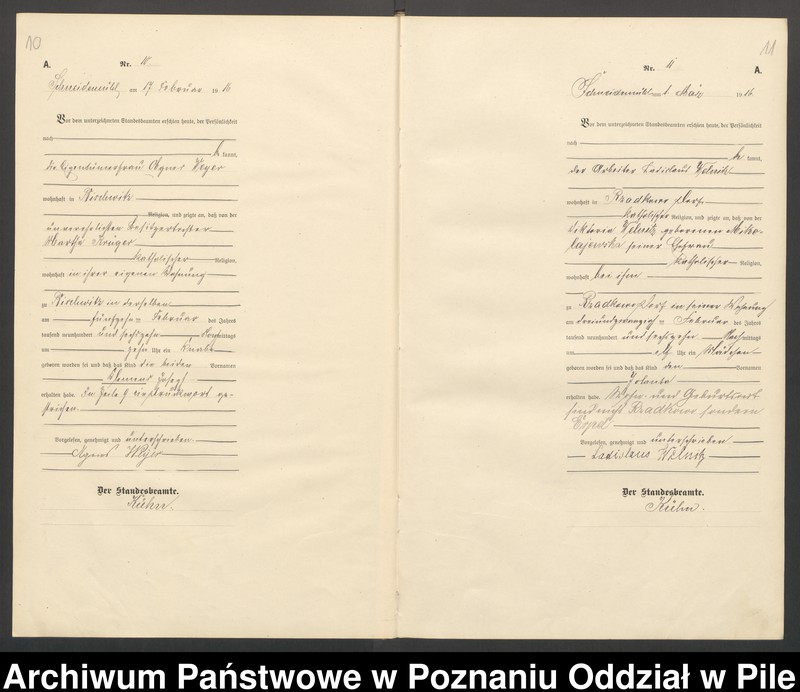 10
A.
Nr. 10.
Schneidemühl, am 17. Februar 1916
Vor dem unterzeichneten Standesbeamten erschien heute, der Persönlichkeit
nach
kannt,
die Eigentümerfrau Agnes Weyer
wohnhaft in
Religion, und zeigte an, daß von der
unverehelichten Besitzertochter
Martha Krüger
katholischer Religion,
wohnhaft in ihrer eigenen Wohnung
zu in derselben
am fünfzehn= Februar des Jahres
tausend neunhundert und sechszehn mittags
um zehn Uhr ein Knabe
geboren worden sei und daß das Kind die beiden Vornamen
Klemens Josef
erhalten habe. In Zeile 9 ein Druckwort ge-
strichen.
Vorgelesen, genehmigt und unterschrieben.
Agnes Weyer
Der Standesbeamte.
Kühn.
11
Nr. 11
A.
Schneidemühl am 1. März 1916.
Vor dem unterzeichneten Standesbeamten erschien heute, der Persönlichkeit
nach
kannt,
der Arbeiter Ladislaus Welnitz
wohnhaft in Bradkowo Dorf
katholischer Religion, und zeigte an, daß von der
Viktoria Welnitz geborenen Miko-
lajewitz seiner Ehefrau
katholischer Religion,
wohnhaft bei ihm
zu Dorf in seiner Wohnung
am dreiundzwanzig= Februar des Jahres
tausend neunhundert und sechszehn Nachmittags
um elf Uhr ein Mädchen
geboren worden sei und daß das Kind den Vornamen
Jolanta
erhalten habe. Wohn- und Geburtsort
sind nicht sondern
Vorgelesen, genehmigt und unterschrieben
Ladislaus Welnitz
Der Standesbeamte.
Kühn.
Archiwum Państwowe w Poznaniu Oddział w Pile